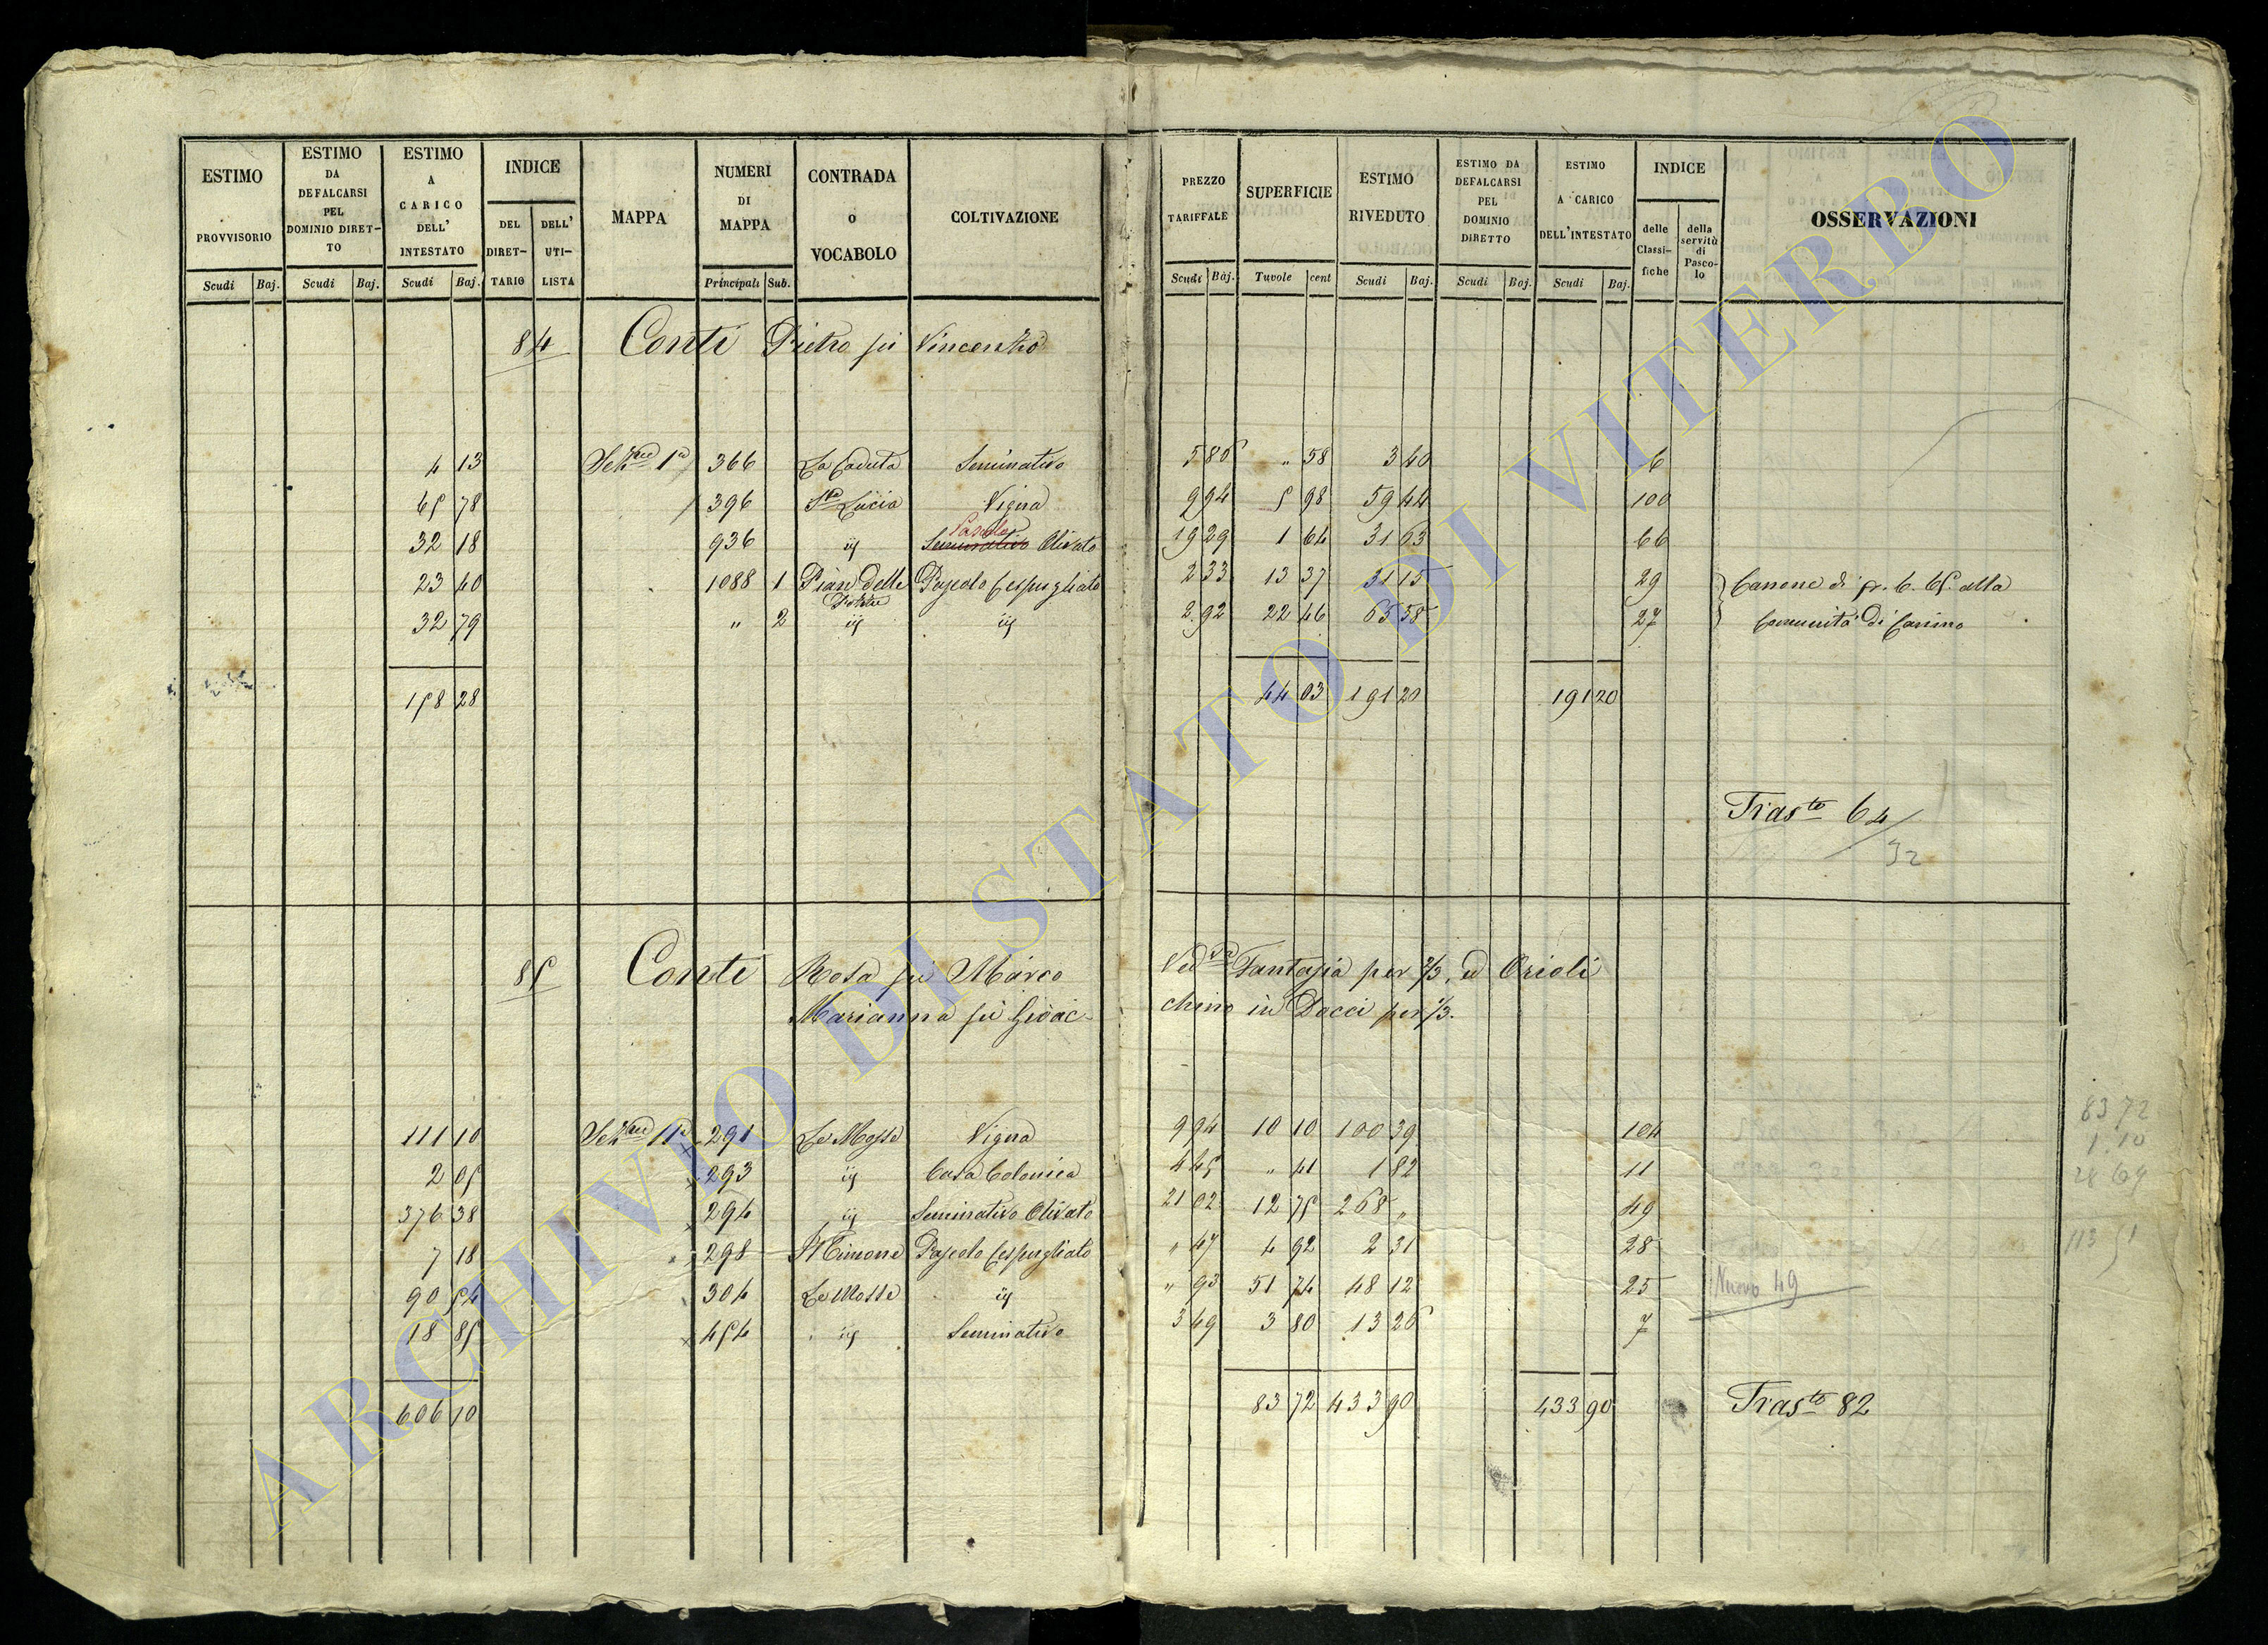 ESTIMO PROVVISORIO Scudi Baj.
ESTIMO DA DEFALCARSI PEL DOMINIO DIRET-TO Scudi Baj.
ESTIMO A CARICO DELL' INTESTATO Scudi Baj.
INDICE DEL DIRET-TARIO DELL' UTI-LISTA
MAPPA
NUMERI DI MAPPA Principali Sub.
CONTRADA o VOCABOLO
COLTIVAZIONE
PREZZO TARIFFALE Scudi Baj.
SUPERFICIE Tavole cent
ESTIMO RIVEDUTO Scudi Baj.
ESTIMO DA DEFALCARSI PEL DOMINIO DIRETTO Scudi Baj.
ESTIMO A CARICO DELL'INTESTATO Scudi Baj.
INDICE delle Classi-fiche della servitù di Pasco-lo
OSSERVAZIONI
84 Conti Pietro fù Vincenzo
4 13 Sezne 1a 366 La Caduta Seminativo 5 86 „ 58 3 40 6
65 78 396 Sta Lucia Vigna 9 94 5 98 59 44 100
Pascolo
32 18 936 iij Seminativo Olivato 19 29 1 64 31 63 66
23 40 1088 1 Pian delle Pascolo Cespugliato 2 33 13 37 31 15 29 Canone di 6. 65 alla
32 79 „ 2 iij iij 2 92 22 46 65 58 27 Comunità di Canino
158 28 44 03 191 20 191 20
Trasto 64
32
85 Conti Rosa fù Marco Veda Fantasia per 2/3, ed Orioli
Marianna fù Gioac- chino in Docci per 1/3.
111 10 Sezne 11a 291 Le Mosse Vigna 9 94 10 10 100 39 104
2 05 293 iij Casa Colonica 4 45 „ 41 1 82 11
376 38 294 iij Seminativo Olivato 21 02 12 75 268 „ 49
7 18 298 Il Timone Pascolo Cespugliato „ 47 4 92 2 31 28
90 54 304 Le Mosse iij „ 93 51 74 48 12 25 Nuovo 49
18 85 454 iij Seminativo 3 49 3 80 13 26 7
606 10 83 72 433 90 433 90 Trasto 82
83 72
1.10
28 69
113 51
ARCHIVIO DI STATO DI VITERBO